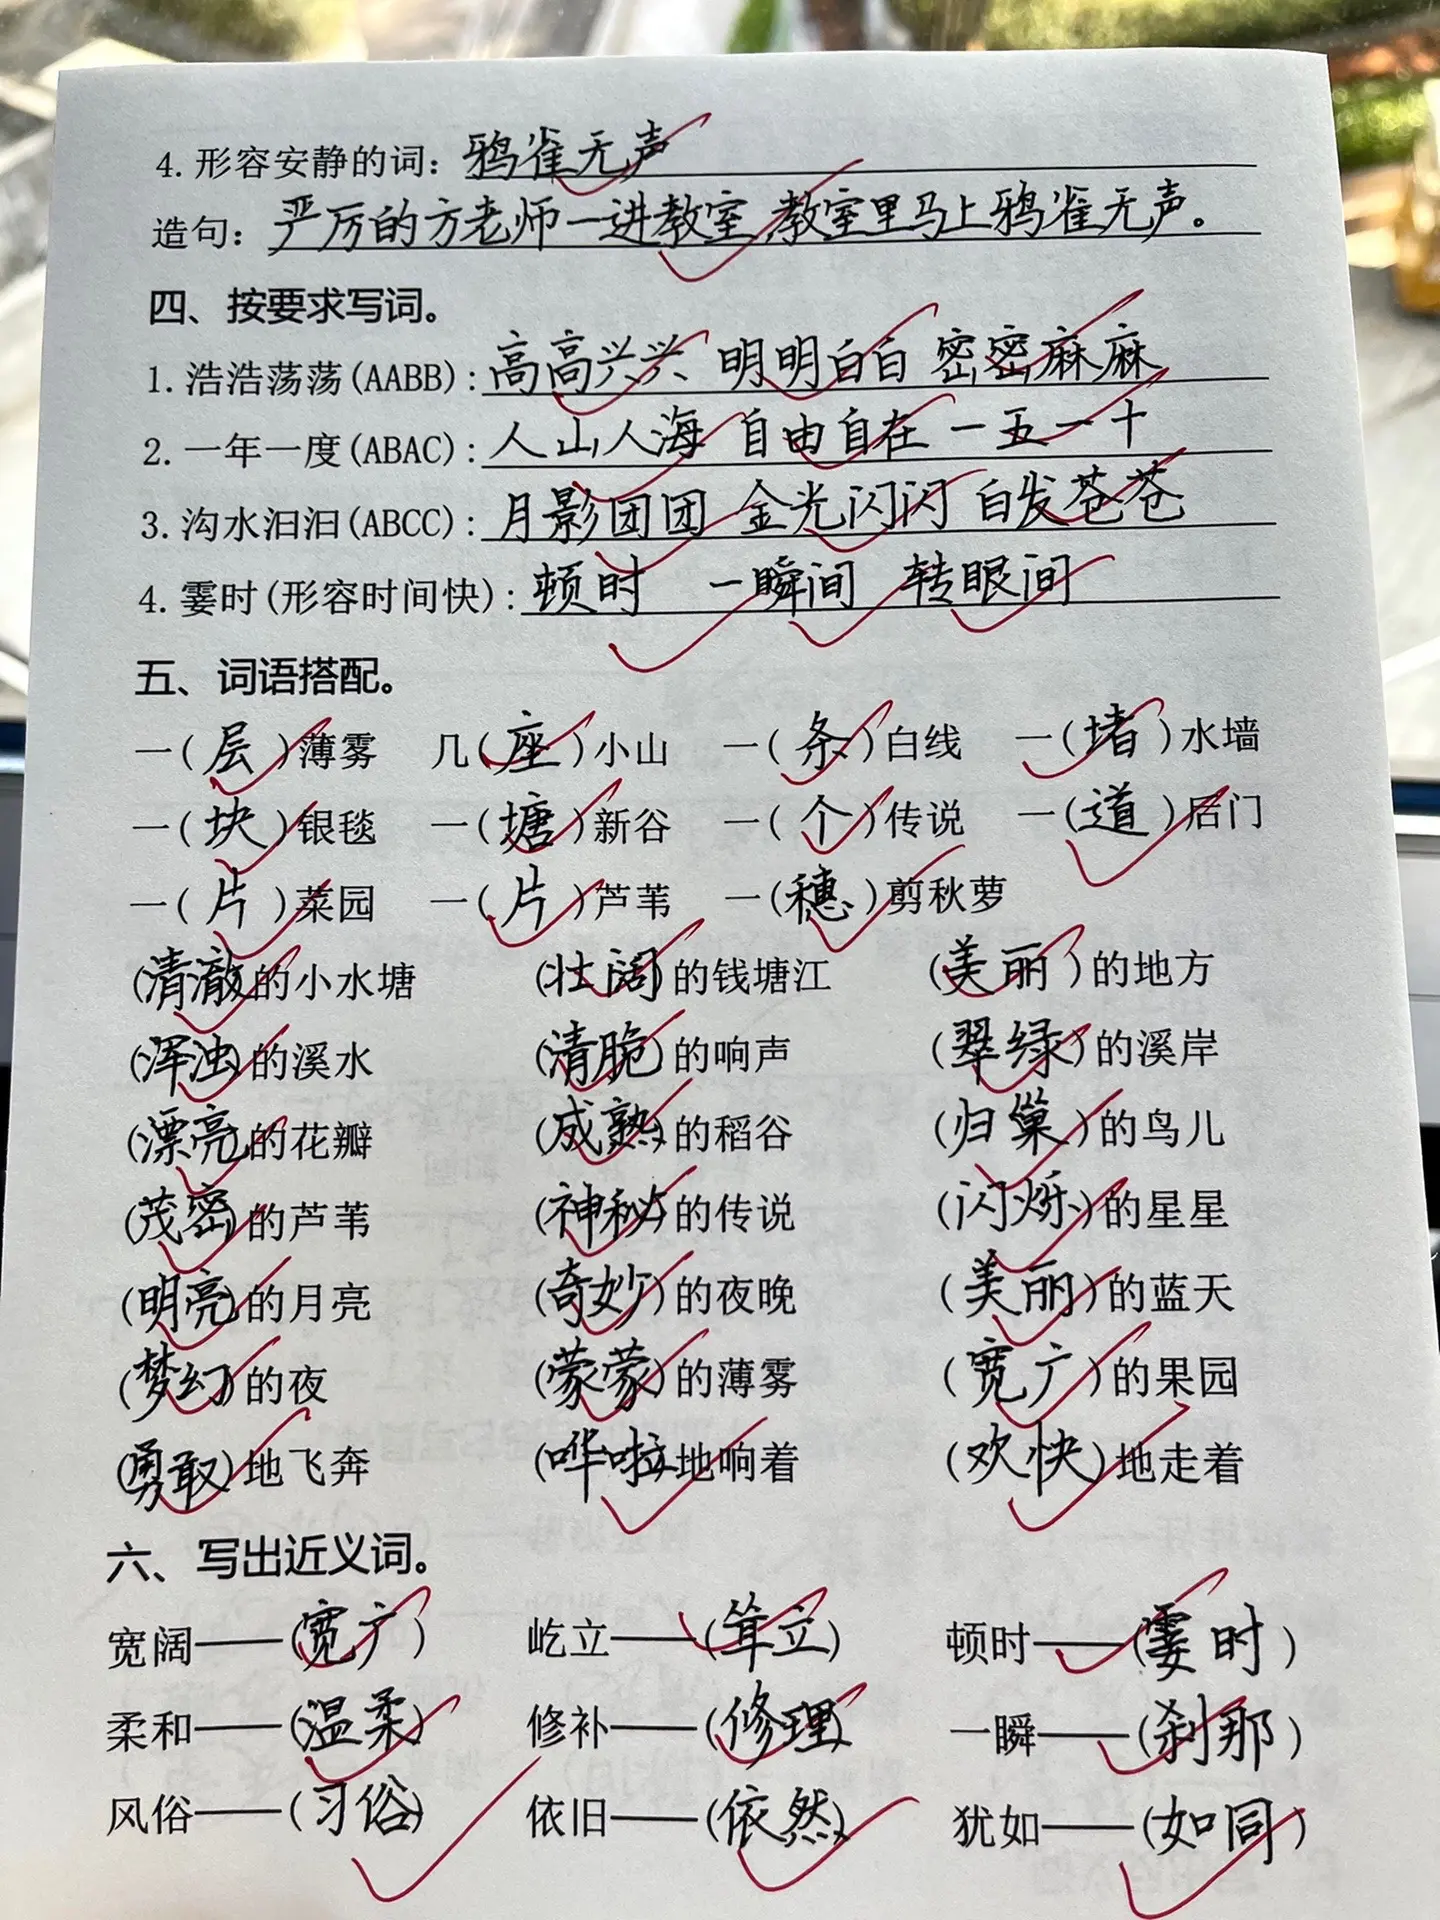 4.形容安静的词：鸦雀无声
造句：严厉的方老师一进教室，教室里马上鸦雀无声。
四、按要求写词。
1.浩浩荡荡(AABB)：高高兴兴 明明白白 密密麻麻
2.一年一度(ABAC)：人山人海 自由自在 一五一十
3.沟水汩汩(ABCC)：月影团团 金光闪闪 白发苍苍
4.霎时(形容时间快)：顿时 一瞬间 转眼间
五、词语搭配。
一(层)薄雾 几(座)小山 一(条)白线 一(堵)水墙
一(块)银毯 一(塘)新谷 一(个)传说 一(道)后门
一(片)菜园 一(片)芦苇 一(穗)剪秋萝
(清澈)的小水塘 (壮阔)的钱塘江 (美丽)的地方
(浑浊)的溪水 (清脆)的响声 (翠绿)的溪岸
(漂亮)的花瓣 (成熟)的稻谷 (归巢)的鸟儿
(茂密)的芦苇 (神秘)的传说 (闪烁)的星星
(明亮)的月亮 (奇妙)的夜晚 (美丽)的蓝天
(梦幻)的夜 (蒙蒙)的薄雾 (宽广)的果园
(勇敢)地飞奔 (哗啦)地响着 (欢快)地走着
六、写出近义词。
宽阔——(宽广) 屹立——(耸立) 顿时——(霎时)
柔和——(温柔) 修补——(修理) 一瞬——(刹那)
风俗——(习俗) 依旧——(依然) 犹如——(如同)